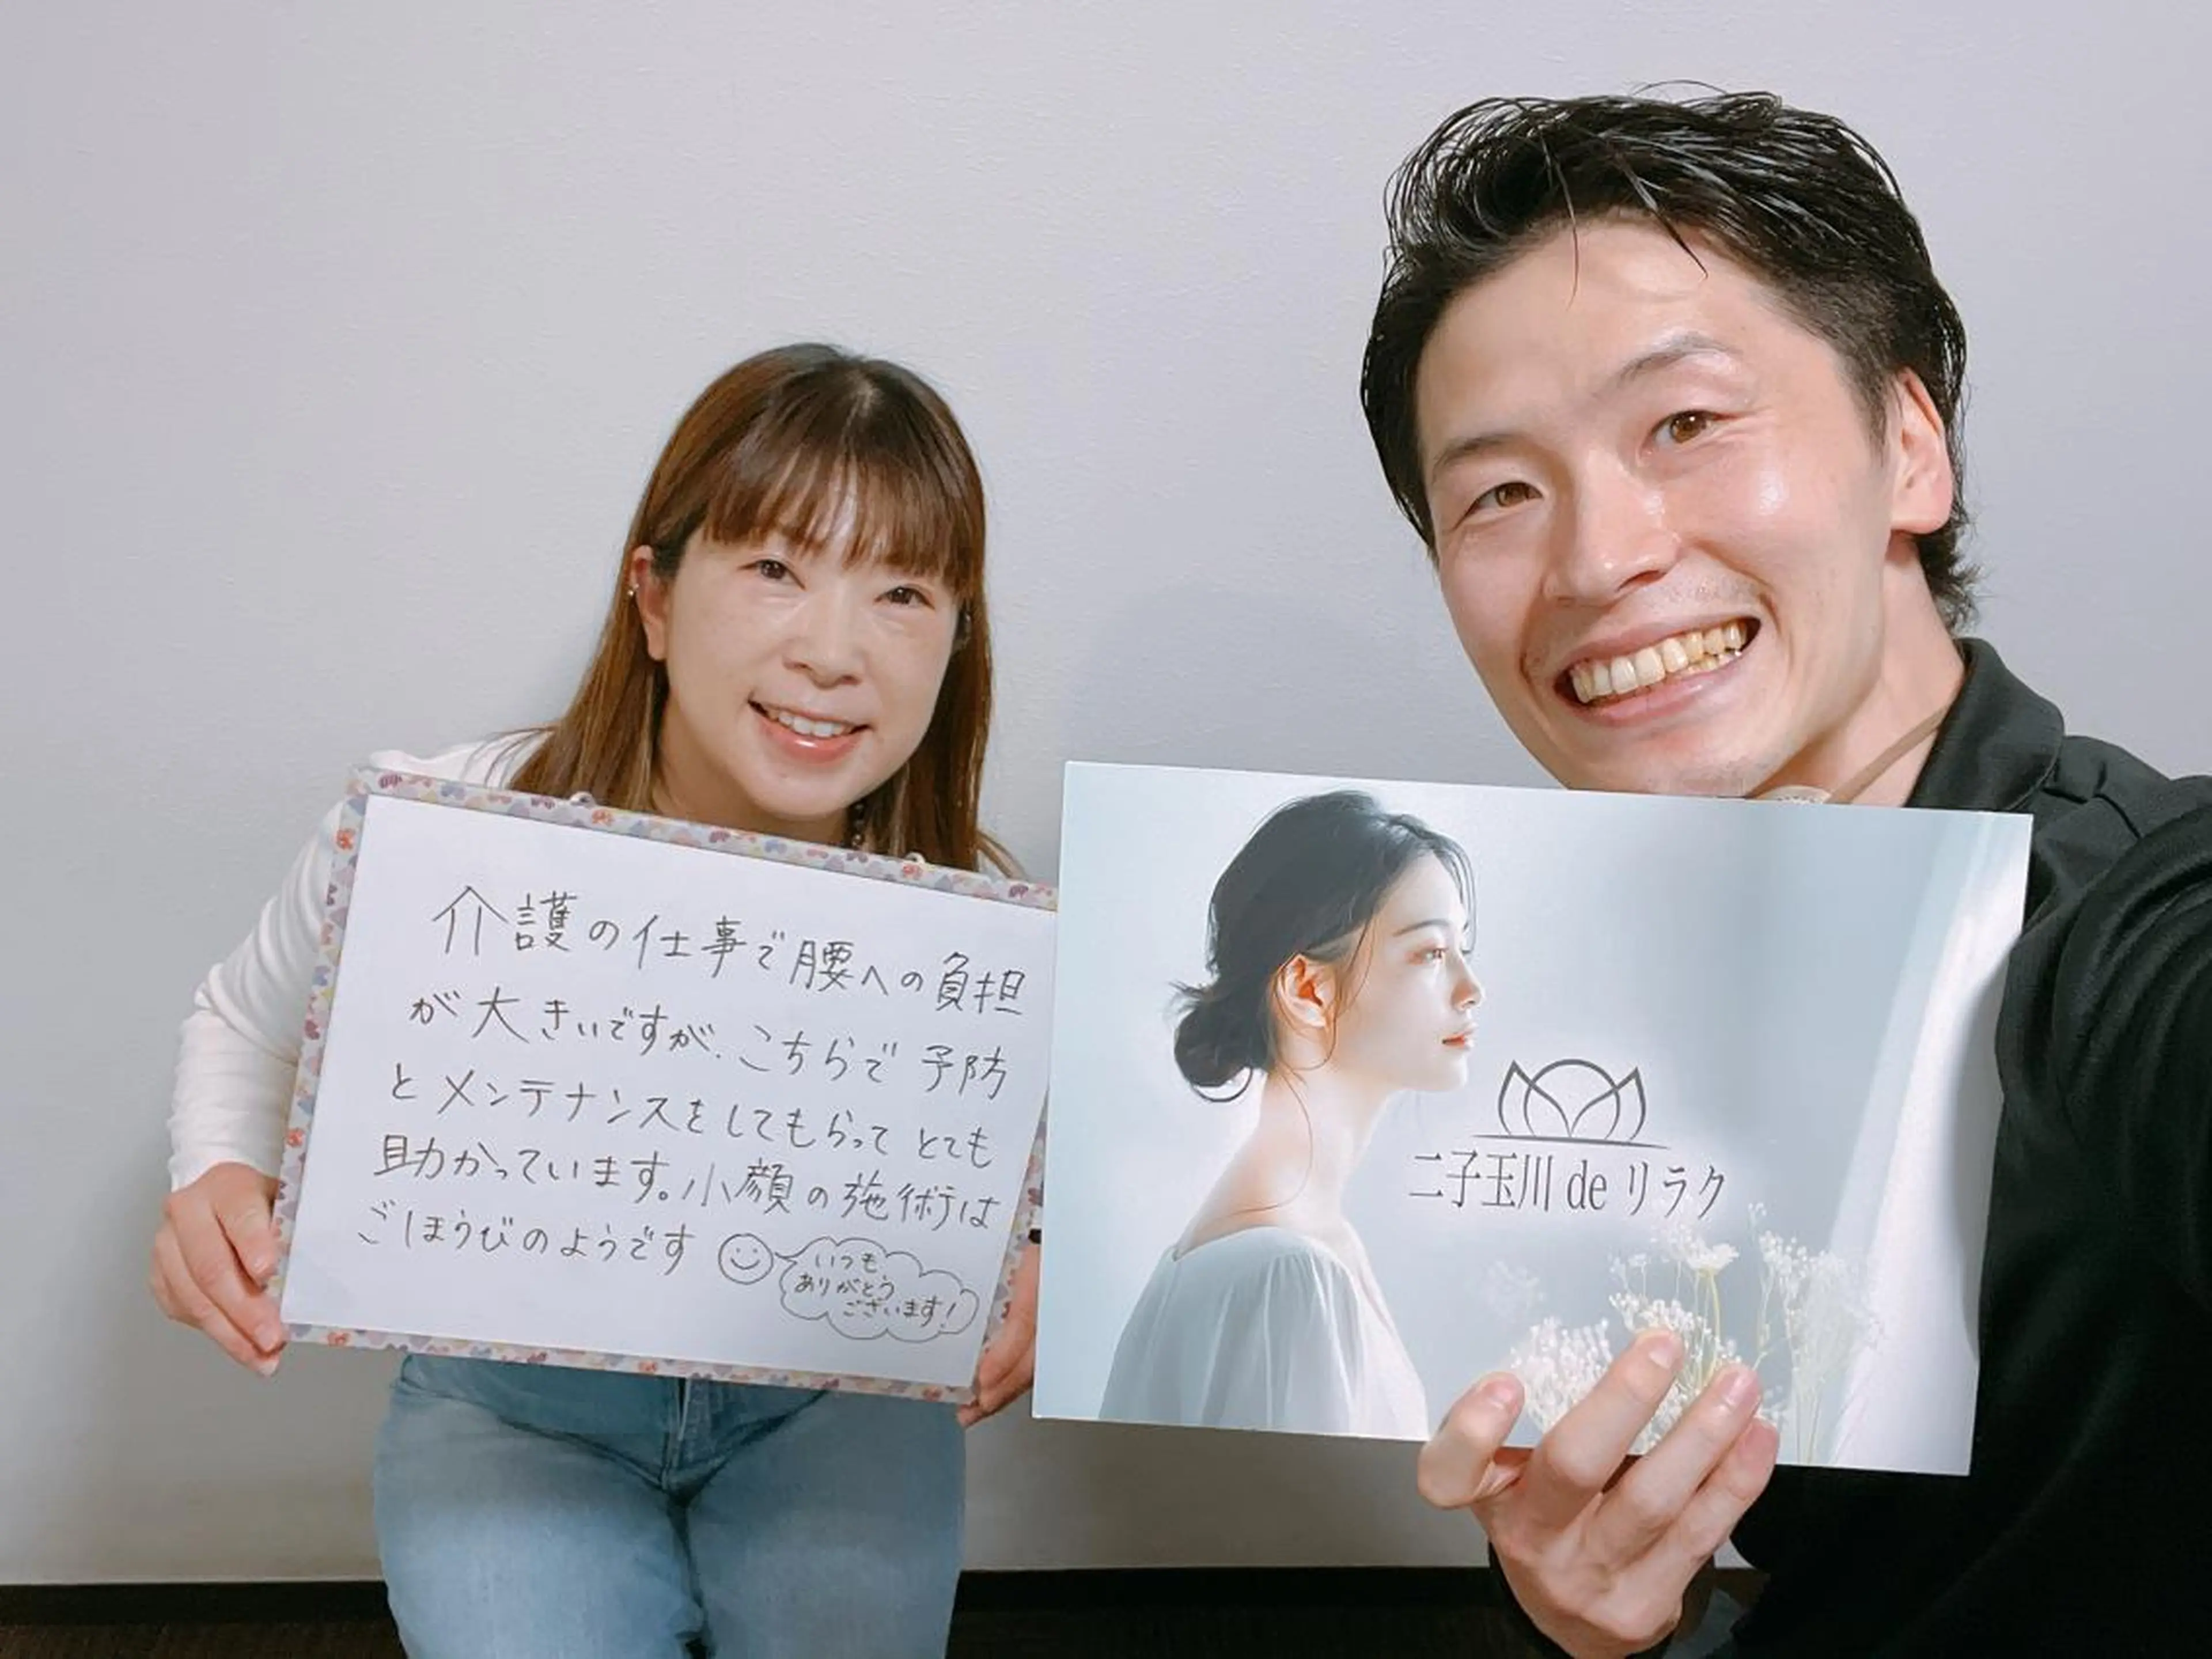 介護の仕事で腰への負担
が大きいですが、こちらで予防
とメンテナンスをしてもらってとても
助かっています。小顔の施術は
ごほうびのようです
いつも
ありがとう
ございます!
二子玉川 de リラク